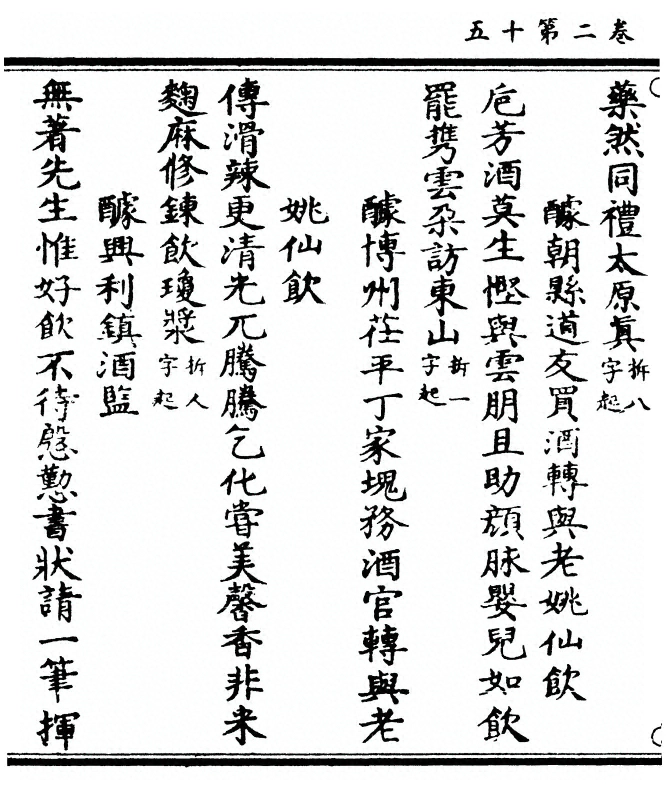 卷二第十五
藥然同禮太原眞拆八字起
醵朝縣道友買酒轉與老姚仙飲
巵芳酒莫生慳與雲朋且助顔脉嬰兒如飲
罷携雲朶訪東山拆一字起
醵博州茌平丁家塊務酒官轉與老
姚仙飲
傳滑辣更清光兀騰騰乞化甞美馨香非来
麴麻修鍊飲瓊漿拆人字起
醵興利鎮酒監
無著先生惟好飲不待慇懃書狀請一筆揮